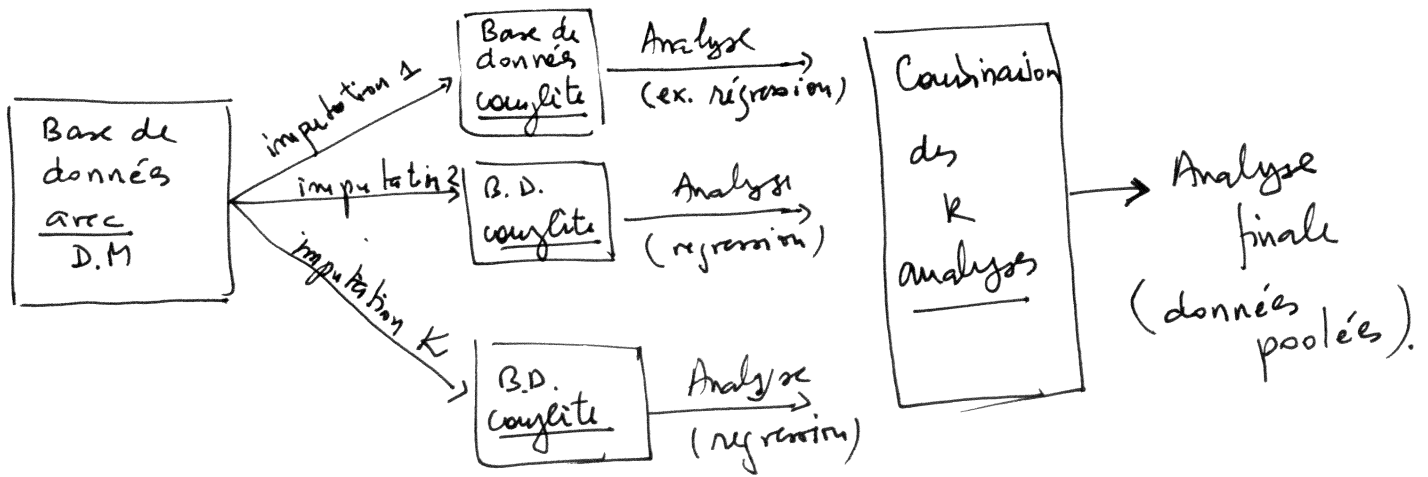 Base de
données
avec
D.M
imputation 1
imputation 2
imputation K
Base de
données
complète
Analyse
(ex. régression)
B.D.
complète
Analyse
(regression)
B.D.
complète
Analyse
(regression)
Combinaison
des
K
analyses
Analyse
finale
(données
poolées).